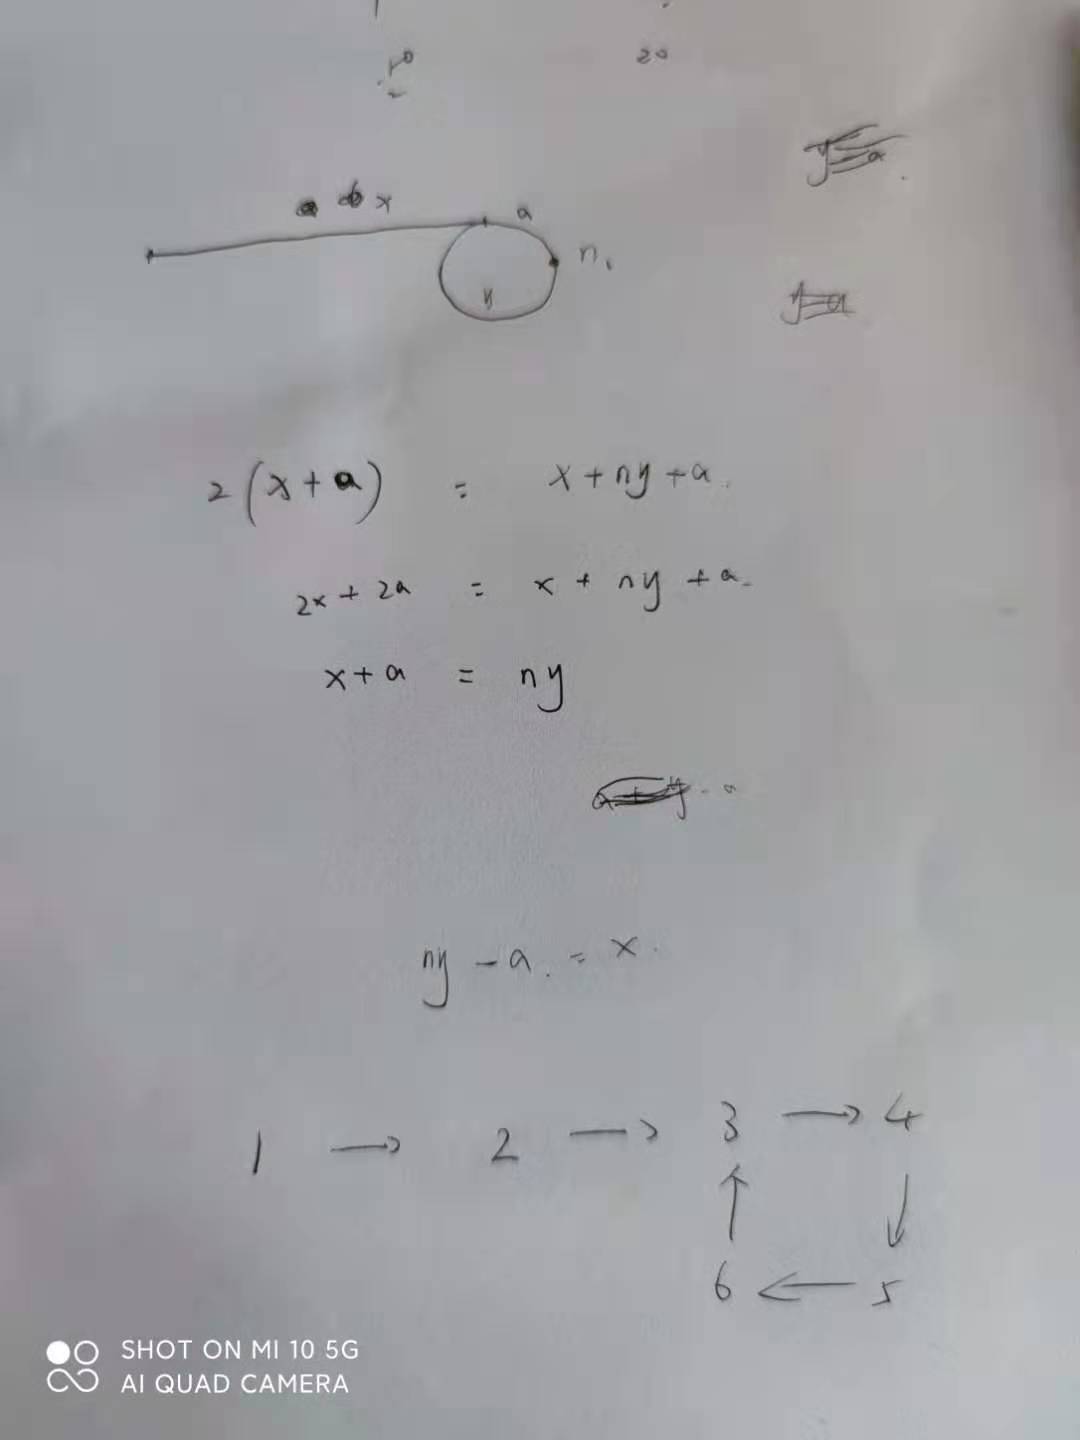 20
x a
n₁
y
2(x+a) = x+ny+a.
2x + 2a = x + ny + a.
x+a = ny
ny - a. = x.
1 → 2 → 3 → 4
↑ ↓
6 ← 5
SHOT ON MI 10 5G
AI QUAD CAMERA